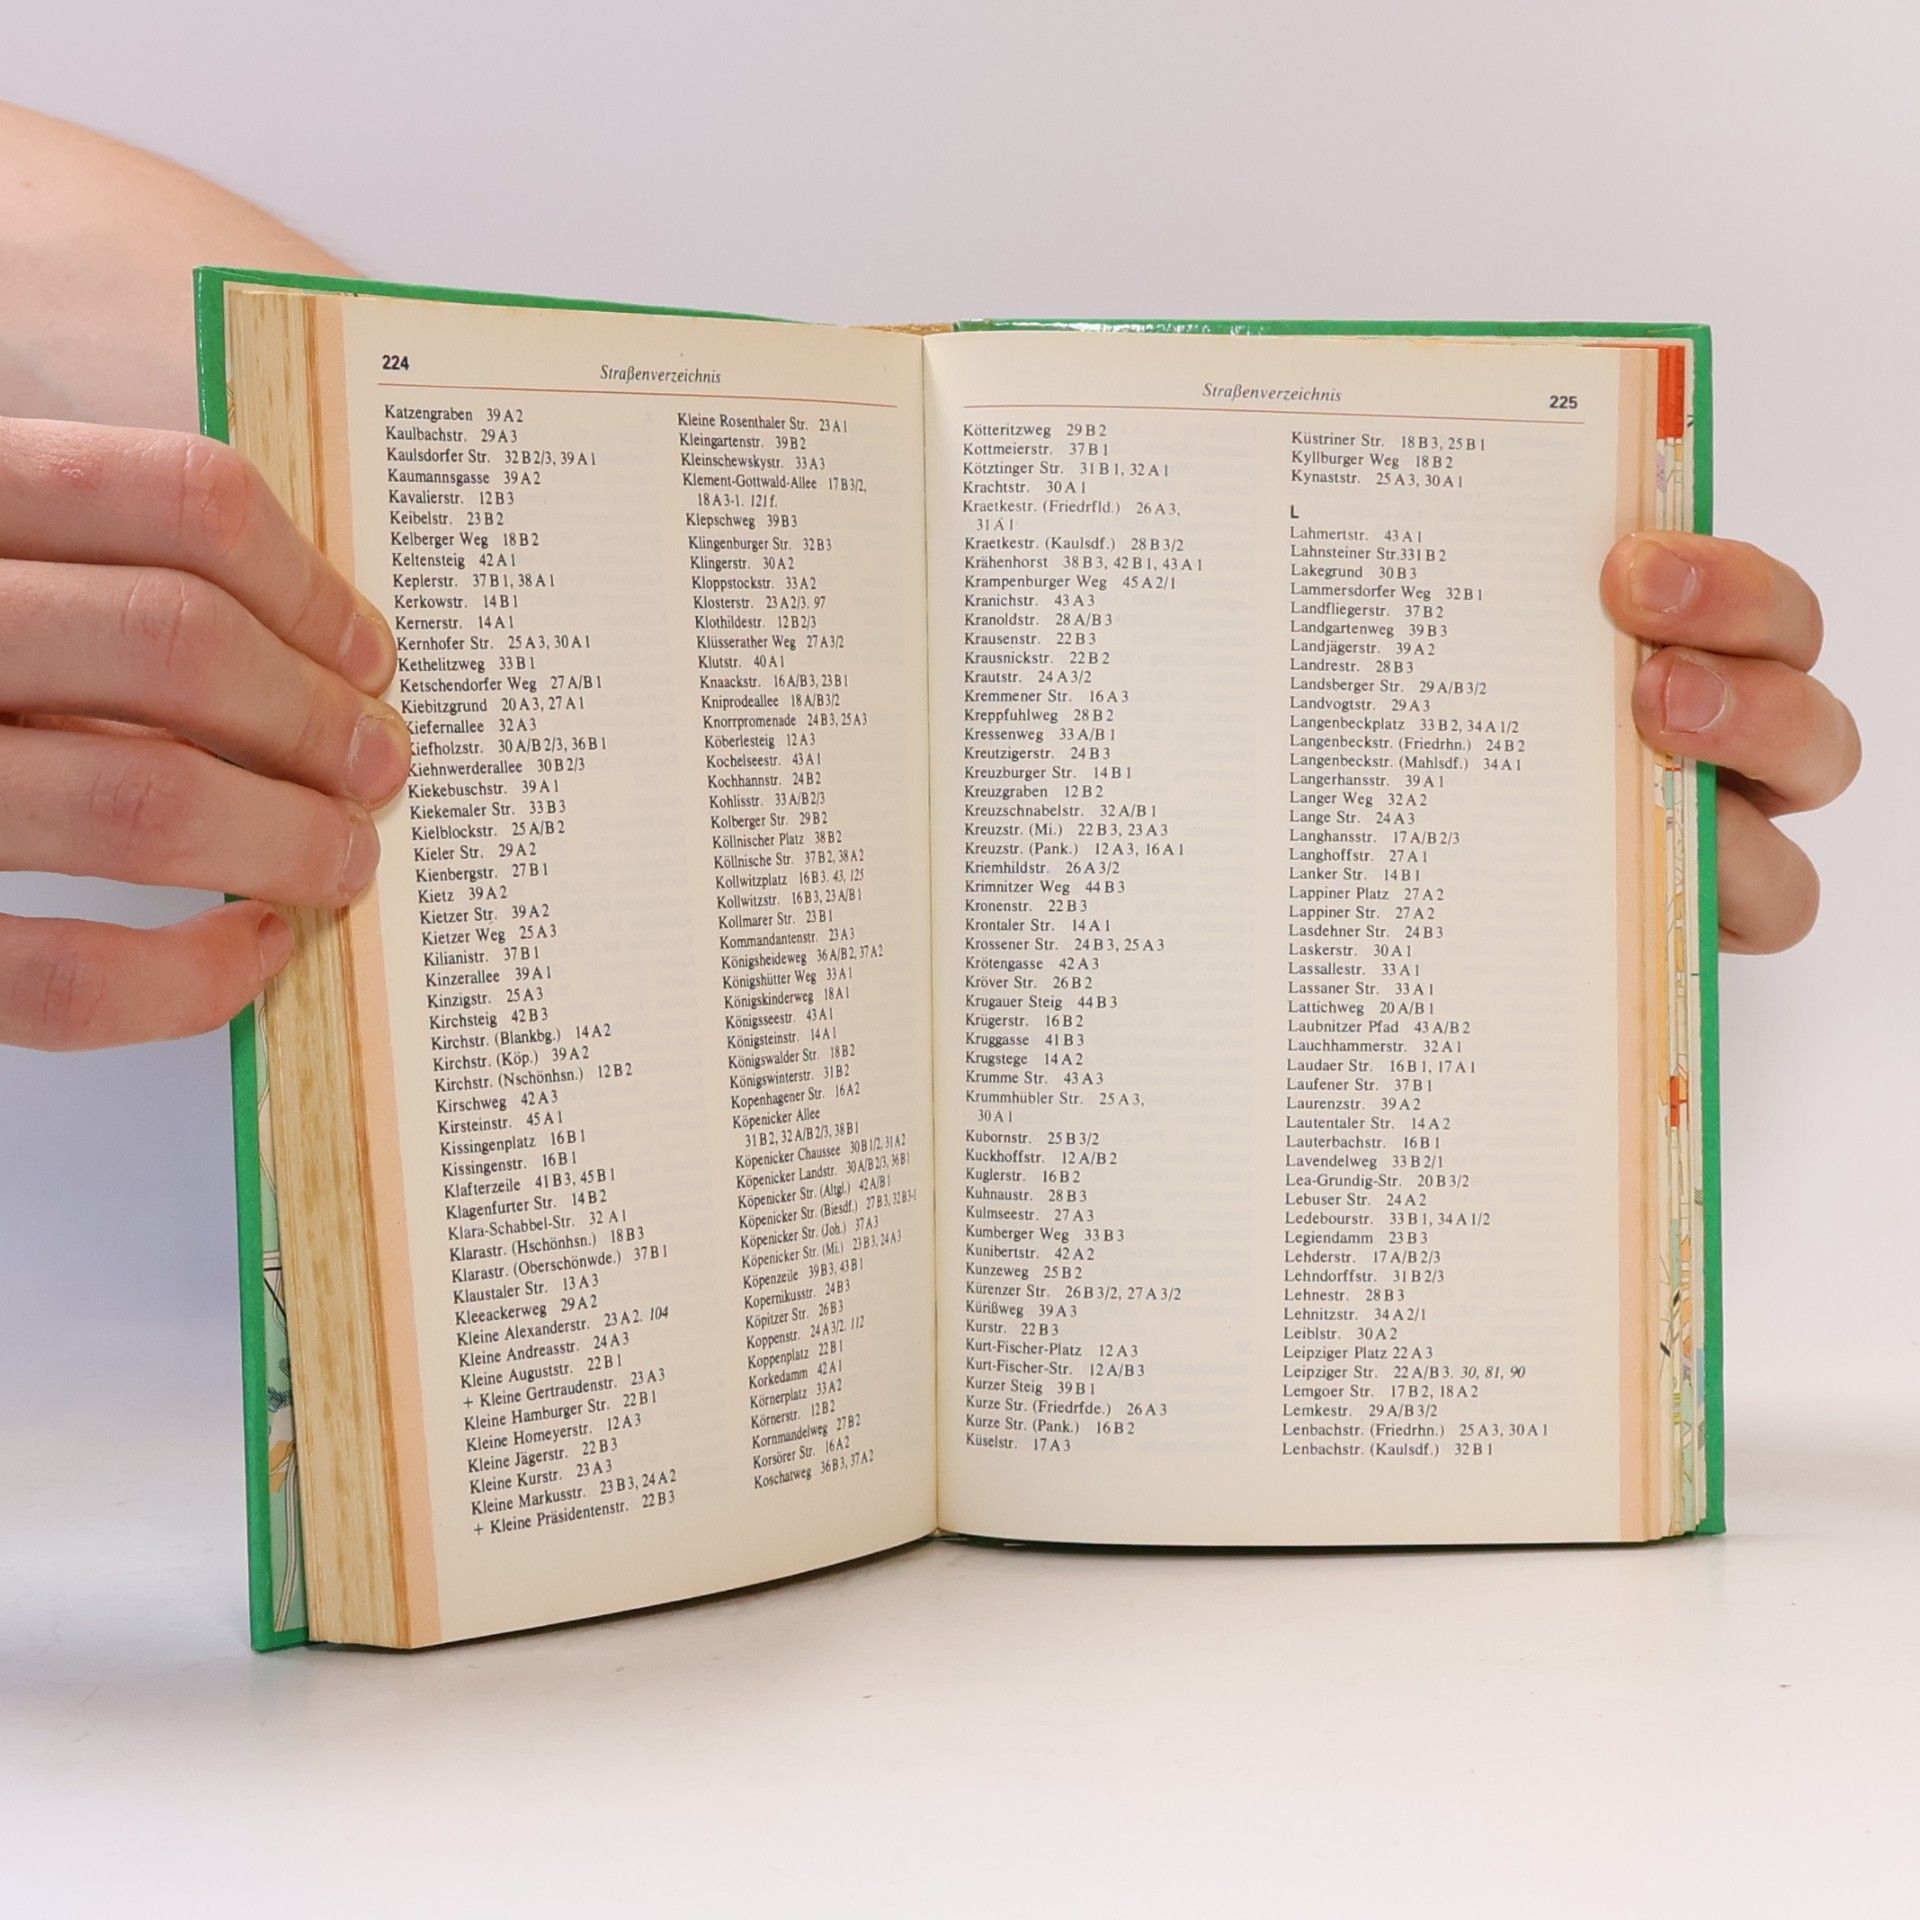 224
Straßenverzeichnis
Katzengraben 39 A 2
Kaulbachstr. 29 A 3
Kaulsdorfer Str. 32 B 2/3, 39 A 1
Kaumannsgasse 39 A 2
Kavalierstr. 12 B 3
Keibelstr. 23 B 2
Kelberger Weg 18 B 2
Keltensteig 42 A 1
Keplerstr. 37 B 1, 38 A 1
Kerkowstr. 14 B 1
Kernerstr. 14 A 1
Kernhofer Str. 25 A 3, 30 A 1
Kethelitzweg 33 B 1
Ketschendorfer Weg 27 A/B 1
Kiebitzgrund 20 A 3, 27 A 1
Kiefernallee 32 A 3
Kiefholzstr. 30 A/B 2/3, 36 B 1
Kiehnwerderallee 30 B 2/3
Kiekebuschstr. 39 A 1
Kiekemaler Str. 33 B 3
Kielblockstr. 25 A/B 2
Kieler Str. 29 A 2
Kienbergstr. 27 B 1
Kietz 39 A 2
Kietzer Str. 39 A 2
Kietzer Weg 25 A 3
Kilianistr. 37 B 1
Kinzerallee 39 A 1
Kinzigstr. 25 A 3
Kirchsteig 42 B 3
Kirchstr. (Blankbg.) 14 A 2
Kirchstr. (Köp.) 39 A 2
Kirchstr. (Nschönhsn.) 12 B 2
Kirschweg 42 A 3
Kirsteinstr. 45 A 1
Kissingenplatz 16 B 1
Kissingenstr. 16 B 1
Klafterzeile 41 B 3, 45 B 1
Klagenfurter Str. 14 B 2
Klara-Schabbel-Str. 32 A 1
Klarastr. (Hschönhsn.) 18 B 3
Klarastr. (Oberschönwde.) 37 B 1
Klaustaler Str. 13 A 3
Kleeackerweg 29 A 2
Kleine Alexanderstr. 23 A 2. 104
Kleine Andreasstr. 24 A 3
Kleine Auguststr. 22 B 1
+ Kleine Gertraudenstr. 23 A 3
Kleine Hamburger Str. 22 B 1
Kleine Homeyerstr. 12 A 3
Kleine Jägerstr. 22 B 3
Kleine Kurstr. 23 A 3
Kleine Markusstr. 23 B 3, 24 A 2
+ Kleine Präsidentenstr. 22 B 3
Kleine Rosenthaler Str. 23 A 1
Kleingartenstr. 39 B 2
Kleinschewskystr. 33 A 3
Klement-Gottwald-Allee 17 B 3/2,
18 A 3-1. 121 f.
Klepschweg 39 B 3
Klingenburger Str. 32 B 3
Klingerstr. 30 A 2
Kloppstockstr. 33 A 2
Klosterstr. 23 A 2/3. 97
Klothildestr. 12 B 2/3
Klüsserather Weg 27 A 3/2
Klutstr. 40 A 1
Knaackstr. 16 A/B 3, 23 B 1
Kniprodeallee 18 A/B 3/2
Knorrpromenade 24 B 3, 25 A 3
Köberlesteig 12 A 3
Kochelseestr. 43 A 1
Kochhannstr. 24 B 2
Kohlisstr. 33 A/B 2/3
Kolberger Str. 29 B 2
Köllnischer Platz 38 B 2
Köllnische Str. 37 B 2, 38 A 2
Kollwitzplatz 16 B 3. 43, 125
Kollwitzstr. 16 B 3, 23 A/B 1
Kollmarer Str. 23 B 1
Kommandantenstr. 23 A 3
Königsheideweg 36 A/B 2, 37 A 2
Königshütter Weg 33 A 1
Königskinderweg 18 A 1
Königsseestr. 43 A 1
Königsteinstr. 14 A 1
Königswalder Str. 18 B 2
Königswinterstr. 31 B 2
Kopenhagener Str. 16 A 2
Köpenicker Allee
31 B 2, 32 A/B 2/3, 38 B 1
Köpenicker Chaussee 30 B 1/2, 31 A 2
Köpenicker Landstr. 30 A/B 2/3, 36 B 1
Köpenicker Str. (Altgl.) 42 A/B 1
Köpenicker Str. (Biesdf.) 27 B 3, 32 B 3-1
Köpenicker Str. (Joh.) 37 A 3
Köpenicker Str. (Mi.) 23 B 3, 24 A 3
Köpenzeile 39 B 3, 43 B 1
Kopernikusstr. 24 B 3
Köpitzer Str. 26 B 3
Koppenstr. 24 A 3/2. 112
Koppenplatz 22 B 1
Korkedamm 42 A 1
Körnerplatz 33 A 2
Körnerstr. 12 B 2
Kornmandelweg 27 B 2
Korsörer Str. 16 A 2
Koschatweg 36 B 3, 37 A 2
Straßenverzeichnis
225
Kötteritzweg 29 B 2
Kottmeierstr. 37 B 1
Kötztinger Str. 31 B 1, 32 A 1
Krachtstr. 30 A 1
Kraetkestr. (Friedrfld.) 26 A 3,
31 A 1
Kraetkestr. (Kaulsdf.) 28 B 3/2
Krähenhorst 38 B 3, 42 B 1, 43 A 1
Krampenburger Weg 45 A 2/1
Kranichstr. 43 A 3
Kranoldstr. 28 A/B 3
Krausenstr. 22 B 3
Krausnickstr. 22 B 2
Krautstr. 24 A 3/2
Kremmener Str. 16 A 3
Kreppfuhlweg 28 B 2
Kressenweg 33 A/B 1
Kreutzigerstr. 24 B 3
Kreuzburger Str. 14 B 1
Kreuzgraben 12 B 2
Kreuzschnabelstr. 32 A/B 1
Kreuzstr. (Mi.) 22 B 3, 23 A 3
Kreuzstr. (Pank.) 12 A 3, 16 A 1
Kriemhildstr. 26 A 3/2
Krimnitzer Weg 44 B 3
Kronenstr. 22 B 3
Krontaler Str. 14 A 1
Krossener Str. 24 B 3, 25 A 3
Krötengasse 42 A 3
Kröver Str. 26 B 2
Krugauer Steig 44 B 3
Krügerstr. 16 B 2
Kruggasse 41 B 3
Krugstege 14 A 2
Krumme Str. 43 A 3
Krummhübler Str. 25 A 3,
30 A 1
Kubornstr. 25 B 3/2
Kuckhoffstr. 12 A/B 2
Kuglerstr. 16 B 2
Kuhnaustr. 28 B 3
Kulmseestr. 27 A 3
Kumberger Weg 33 B 3
Kunibertstr. 42 A 2
Kunzeweg 25 B 2
Kürenzer Str. 26 B 3/2, 27 A 3/2
Kürißweg 39 A 3
Kurstr. 22 B 3
Kurt-Fischer-Platz 12 A 3
Kurt-Fischer-Str. 12 A/B 3
Kurzer Steig 39 B 1
Kurze Str. (Friedrfde.) 26 A 3
Kurze Str. (Pank.) 16 B 2
Küselstr. 17 A 3
Küstriner Str. 18 B 3, 25 B 1
Kyllburger Weg 18 B 2
Kynaststr. 25 A 3, 30 A 1
L
Lahmertstr. 43 A 1
Lahnsteiner Str.331 B 2
Lakegrund 30 B 3
Lammersdorfer Weg 32 B 1
Landfliegerstr. 37 B 2
Landgartenweg 39 B 3
Landjägerstr. 39 A 2
Landrestr. 28 B 3
Landsberger Str. 29 A/B 3/2
Landvogtstr. 29 A 3
Langenbeckplatz 33 B 2, 34 A 1/2
Langenbeckstr. (Friedrhn.) 24 B 2
Langenbeckstr. (Mahlsdf.) 34 A 1
Langerhansstr. 39 A 1
Langer Weg 32 A 2
Lange Str. 24 A 3
Langhansstr. 17 A/B 2/3
Langhoffstr. 27 A 1
Lanker Str. 14 B 1
Lappiner Platz 27 A 2
Lappiner Str. 27 A 2
Lasdehner Str. 24 B 3
Laskerstr. 30 A 1
Lassallestr. 33 A 1
Lassaner Str. 33 A 1
Lattichweg 20 A/B 1
Laubnitzer Pfad 43 A/B 2
Lauchhammerstr. 32 A 1
Laudaer Str. 16 B 1, 17 A 1
Laufener Str. 37 B 1
Laurenzstr. 39 A 2
Lautentaler Str. 14 A 2
Lauterbachstr. 16 B 1
Lavendelweg 33 B 2/1
Lea-Grundig-Str. 20 B 3/2
Lebuser Str. 24 A 2
Ledebourstr. 33 B 1, 34 A 1/2
Legiendamm 23 B 3
Lehderstr. 17 A/B 2/3
Lehndorffstr. 31 B 2/3
Lehnestr. 28 B 3
Lehnitzstr. 34 A 2/1
Leiblstr. 30 A 2
Leipziger Platz 22 A 3
Leipziger Str. 22 A/B 3. 30, 81, 90
Lemgoer Str. 17 B 2, 18 A 2
Lemkestr. 29 A/B 3/2
Lenbachstr. (Friedrhn.) 25 A 3, 30 A 1
Lenbachstr. (Kaulsdf.) 32 B 1